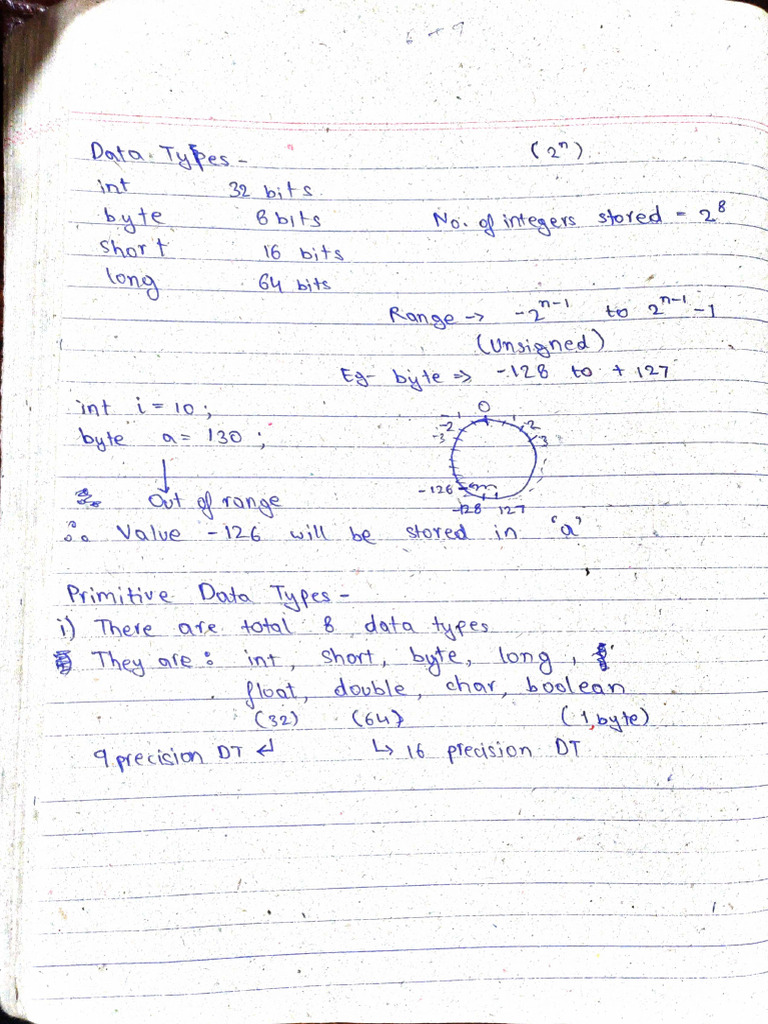 Data Types - (2^n)
int 32 bits
byte 8 bits No. of integers stored = 2^8
short 16 bits
long 64 bits
Range → -2^n-1 to 2^n-1 -1
(Unsigned)
Eg- byte ⇒ -128 to +127
int i = 10 ;
byte a = 130 ;
0
-1 1
-2 2
-3 3
-126
-128 127
↓
Out of range
∴ Value -126 will be stored in 'a'
Primitive Data Types -
i) There are total 8 data types
They are : int, short, byte, long ,
float, double, char, boolean
(32) (64) (1 byte)
9 precision DT ↵ ↳ 16 precision DT